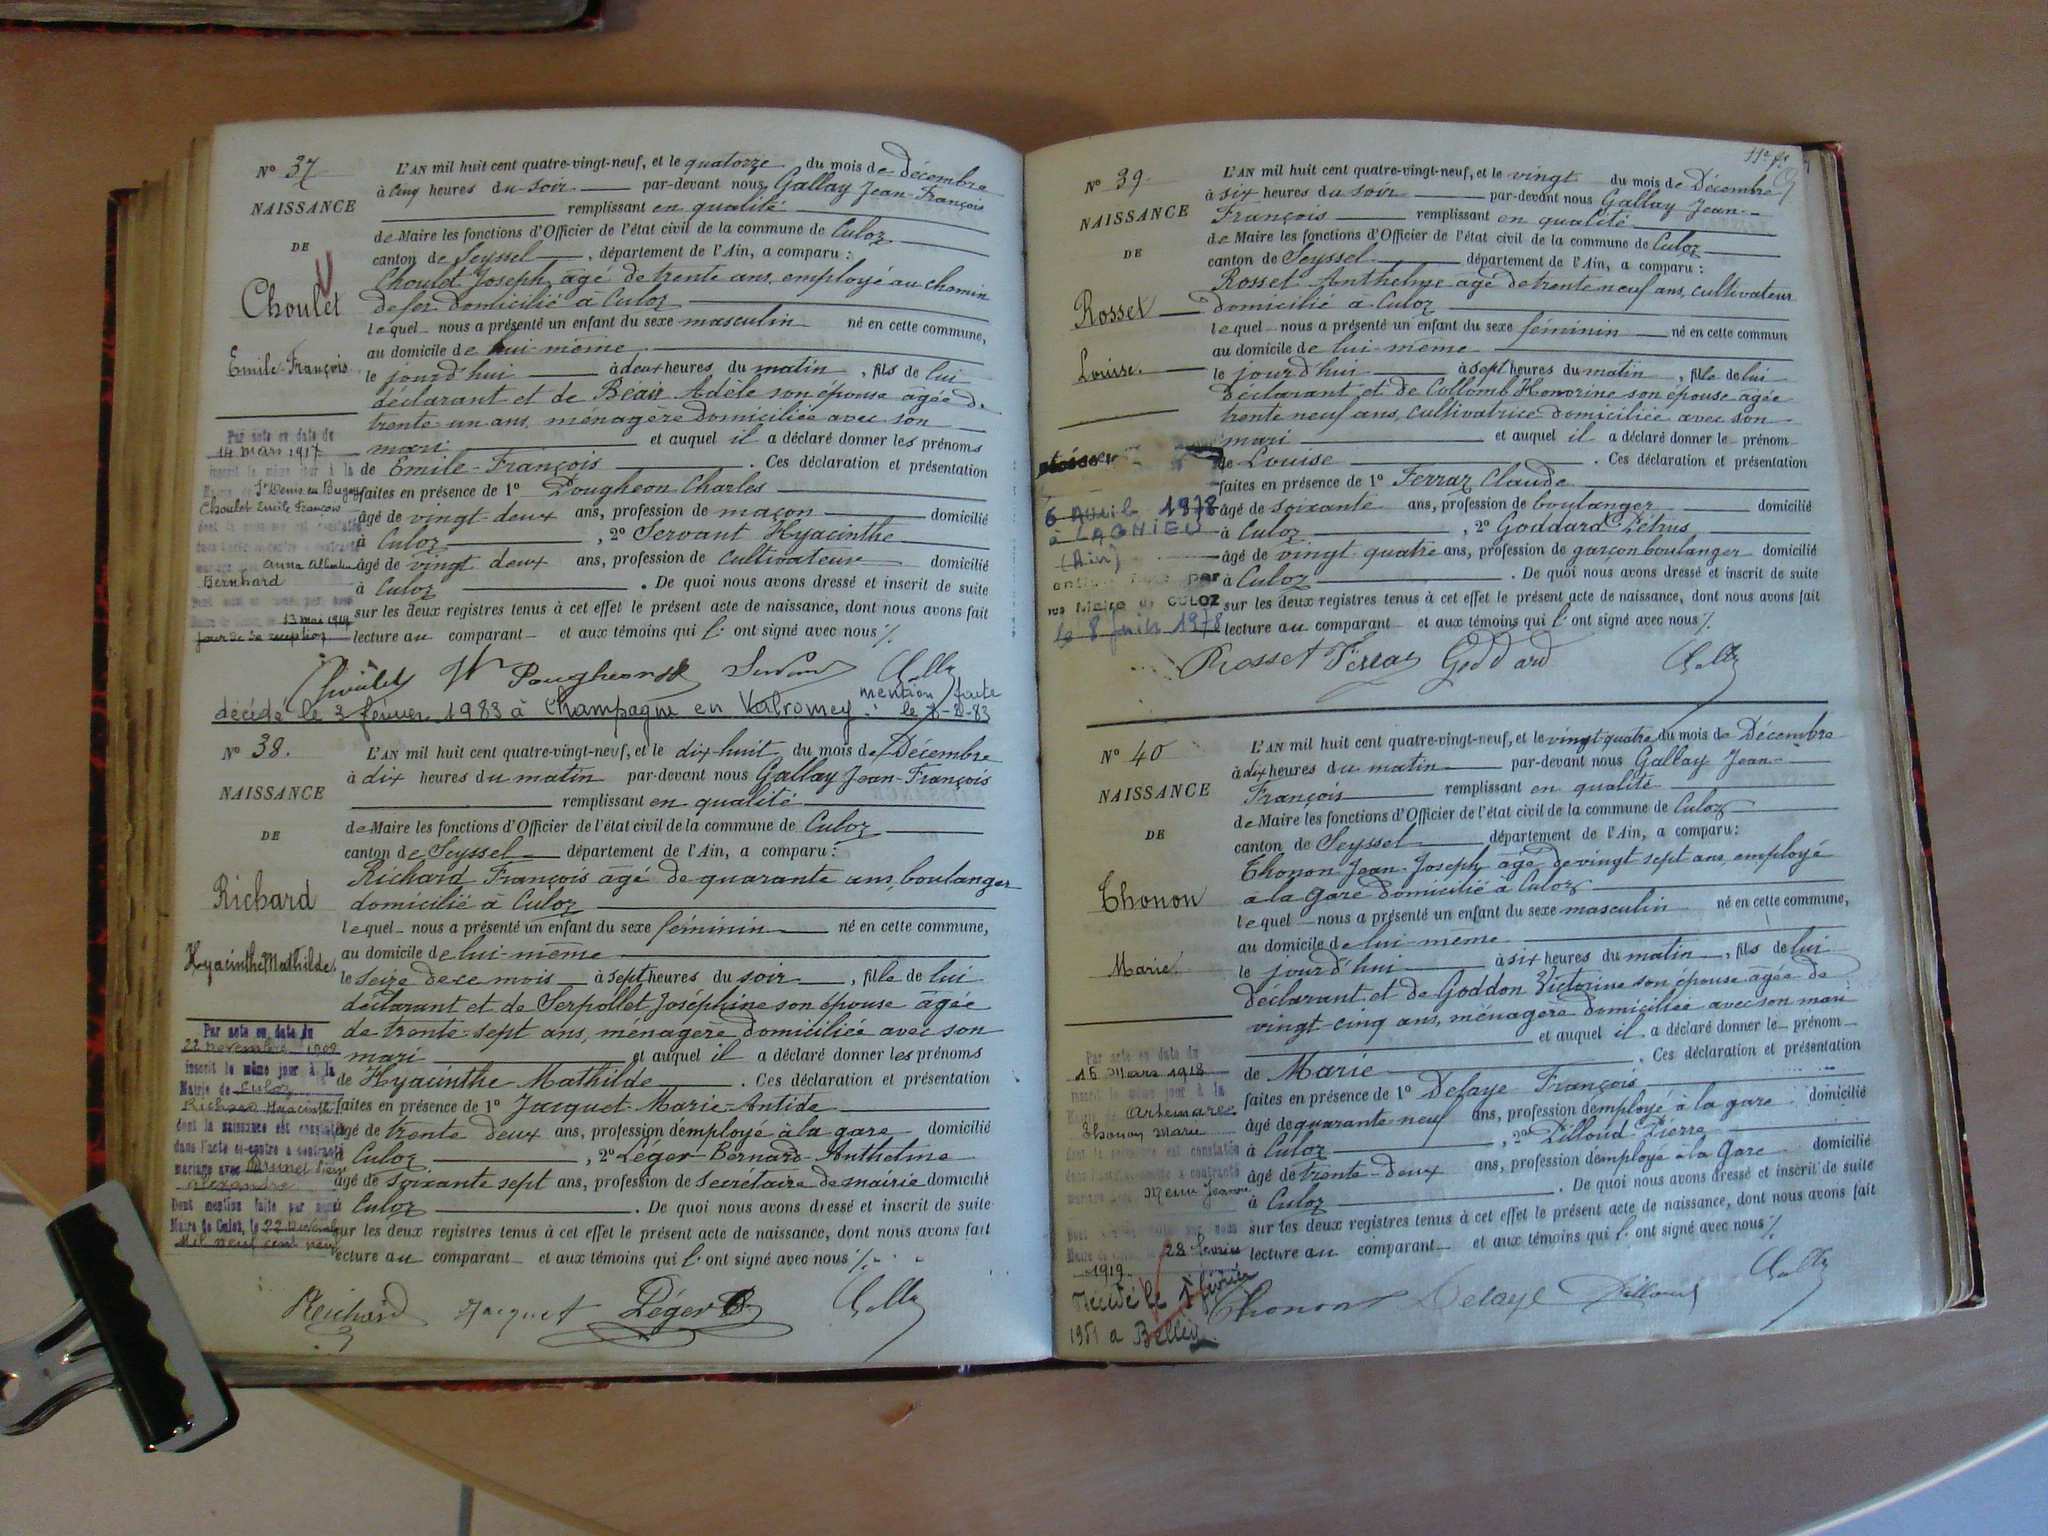 N° 37
NAISSANCE
DE
Choulet
Emile-François
L'AN mil huit cent quatre-vingt-neuf, et le quatorze du mois de Décembre
à cinq heures du soir par-devant nous Gallay Jean-François
remplissant en qualité
de Maire les fonctions d'Officier de l'état civil de la commune de Culoz
canton de Seyssel, département de l'Ain, a comparu :
Choulet Joseph, âgé de trente ans, employé au chemin
de fer domicilié à Culoz
lequel nous a présenté un enfant du sexe masculin né en cette commune,
au domicile de lui-même
le jourd'hui à deux heures du matin, fils de lui
déclarant et de Béair Adèle son épouse âgée de
trente un ans, ménagère domiciliée avec son
mari et auquel il a déclaré donner les prénoms
de Emile-François. Ces déclaration et présentation
faites en présence de 1° Pougheon Charles
âgé de vingt-deux ans, profession de maçon domicilié
à Culoz, 2° Servant Hyacinthe
âgé de vingt deux ans, profession de cultivateur domicilié
à Culoz. De quoi nous avons dressé et inscrit de suite
sur les deux registres tenus à cet effet le présent acte de naissance, dont nous avons fait
lecture au comparant et aux témoins qui l'ont signé avec nous
Par acte en date du
14 mars 1917
inscrit le même jour à la
St Denis en Bugey
Choulet Emile François
Anna Albertine
Bernhard
13 mai 1919
jour de sa réception
Choulet Pougheon Servant Gallay
décédé le 3 février 1983 à Champagne en Valromey mention faite
le 8-2-83
N° 38.
NAISSANCE
DE
Richard
Hyacinthe Mathilde.
L'AN mil huit cent quatre-vingt-neuf, et le dix-huit du mois de Décembre
à dix heures du matin par-devant nous Gallay Jean-François
remplissant en qualité
de Maire les fonctions d'Officier de l'état civil de la commune de Culoz
canton de Seyssel département de l'Ain, a comparu :
Richard François âgé de quarante ans, boulanger
domicilié à Culoz
lequel nous a présenté un enfant du sexe féminin né en cette commune,
au domicile de lui-même
le seize de ce mois à sept heures du soir, fille de lui
déclarant et de Serpollet Joséphine son épouse âgée
de trente-sept ans, ménagère domiciliée avec son
mari et auquel il a déclaré donner les prénoms
de Hyacinthe Mathilde. Ces déclaration et présentation
faites en présence de 1° Jacquet Marie-Antide
âgé de trente deux ans, profession d'employé à la gare domicilié
Culoz, 2° Léger-Bernard-Anthelme
âgé de soixante sept ans, profession de secrétaire de mairie domicilié
Culoz. De quoi nous avons dressé et inscrit de suite
sur les deux registres tenus à cet effet le présent acte de naissance, dont nous avons fait
lecture au comparant et aux témoins qui l'ont signé avec nous
Par acte en date du
22 novembre 1909
inscrit le même jour à la
Mairie de Culoz
Richard Hyacinthe
dont la naissance est constatée
dans l'acte ci-contre a contracté
mariage avec Brunet
Alexandre
Dont mention faite par nous
Maire de Culoz, le 22 Novembre
Mil neuf cent neuf
Richard Jacquet Léger B Gallay
11e
N° 39.
NAISSANCE
DE
Rosset
Louise.
L'AN mil huit cent quatre-vingt-neuf, et le vingt du mois de Décembre
à six heures du soir par-devant nous Gallay Jean-
François remplissant en qualité
de Maire les fonctions d'Officier de l'état civil de la commune de Culoz
canton de Seyssel département de l'Ain, a comparu :
Rosset Anthelme âgé de trente neuf ans, cultivateur
domicilié à Culoz
lequel nous a présenté un enfant du sexe féminin né en cette commune
au domicile de lui-même
le jourd'hui à sept heures du matin, fille de lui
déclarant et de Collomb Honorine son épouse âgée
trente neuf ans, cultivatrice domiciliée avec son
mari et auquel il a déclaré donner le prénom
de Louise. Ces déclaration et présentation
faites en présence de 1° Ferraz Claude
âgé de soixante ans, profession de boulanger domicilié
à Culoz, 2° Goddard Pétrus
âgé de vingt quatre ans, profession de garçon boulanger domicilié
à Culoz. De quoi nous avons dressé et inscrit de suite
sur les deux registres tenus à cet effet le présent acte de naissance, dont nous avons fait
lecture au comparant et aux témoins qui l'ont signé avec nous
6 AVril 1978
à LAGNIEU
(Ain)
par
Maire de CULOZ
le 8 Juin 1978
Rosset Ferraz Goddard Gallay
N° 40
NAISSANCE
DE
Thonon
Marie.
L'AN mil huit cent quatre-vingt-neuf, et le vingt quatre du mois de Décembre
à dix heures du matin par-devant nous Gallay Jean-
François remplissant en qualité
de Maire les fonctions d'Officier de l'état civil de la commune de Culoz
canton de Seyssel département de l'Ain, a comparu :
Thonon Jean-Joseph âgé de vingt sept ans, employé
à la gare domicilié à Culoz
lequel nous a présenté un enfant du sexe masculin né en cette commune,
au domicile de lui-même
le jourd'hui à six heures du matin, fils de lui
déclarant et de Goddon Victorine son épouse âgée de
vingt-cinq ans, ménagère domiciliée avec son mari
et auquel il a déclaré donner le prénom
de Marie. Ces déclaration et présentation
faites en présence de 1° Delaye François
âgé de quarante neuf ans, profession d'employé à la gare domicilié
à Culoz, 2° Pilloud Pierre
âgé de trente-deux ans, profession d'employé à la Gare domicilié
à Culoz. De quoi nous avons dressé et inscrit de suite
sur les deux registres tenus à cet effet le présent acte de naissance, dont nous avons fait
lecture au comparant et aux témoins qui l'ont signé avec nous
Par acte en date du
16 Mars 1918
inscrit le même jour à la
Artemare
Thonon Marie
28 février
1919
Décédé le 1 février
1951 à Belley.
Thonon Delaye Pilloud Gallay